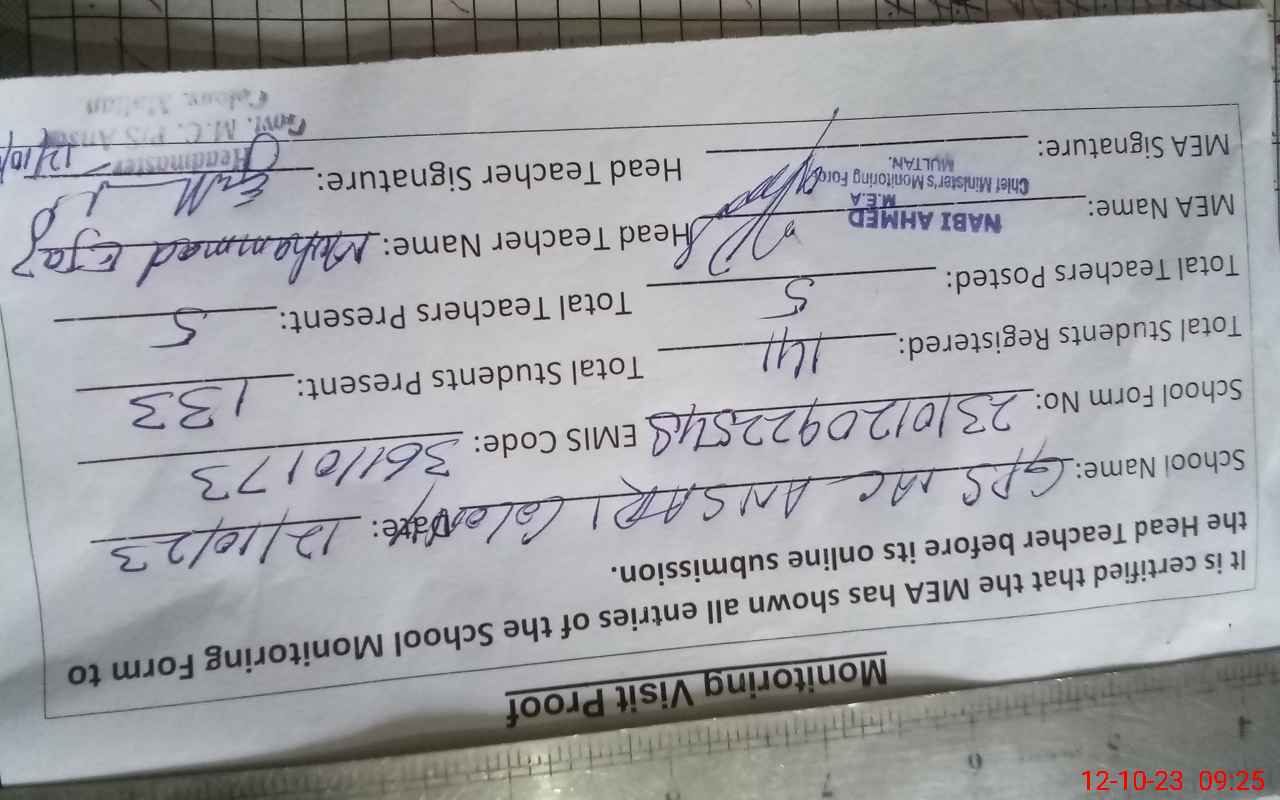 Monitoring Visit Proof
It is certified that the MEA has shown all entries of the School Monitoring Form to
the Head Teacher before its online submission.
School Name: GPS MC ANSARI Colony Date: 12/10/23
School Form No: 2310120922548 EMIS Code: 36110173
Total Students Registered: 141 Total Students Present: 133
Total Teachers Posted: 5 Total Teachers Present: 5
MEA Name: NABI AHMED Head Teacher Name: Muhammad Ejaz
M.E.A
Chief Minister's Monitoring Force
MULTAN.
MEA Signature: Head Teacher Signature:
Headmaster 12/10/
Govt. M.C. P/S Ansari
Colony, Multan
4 5 6 7
12-10-23 09:25